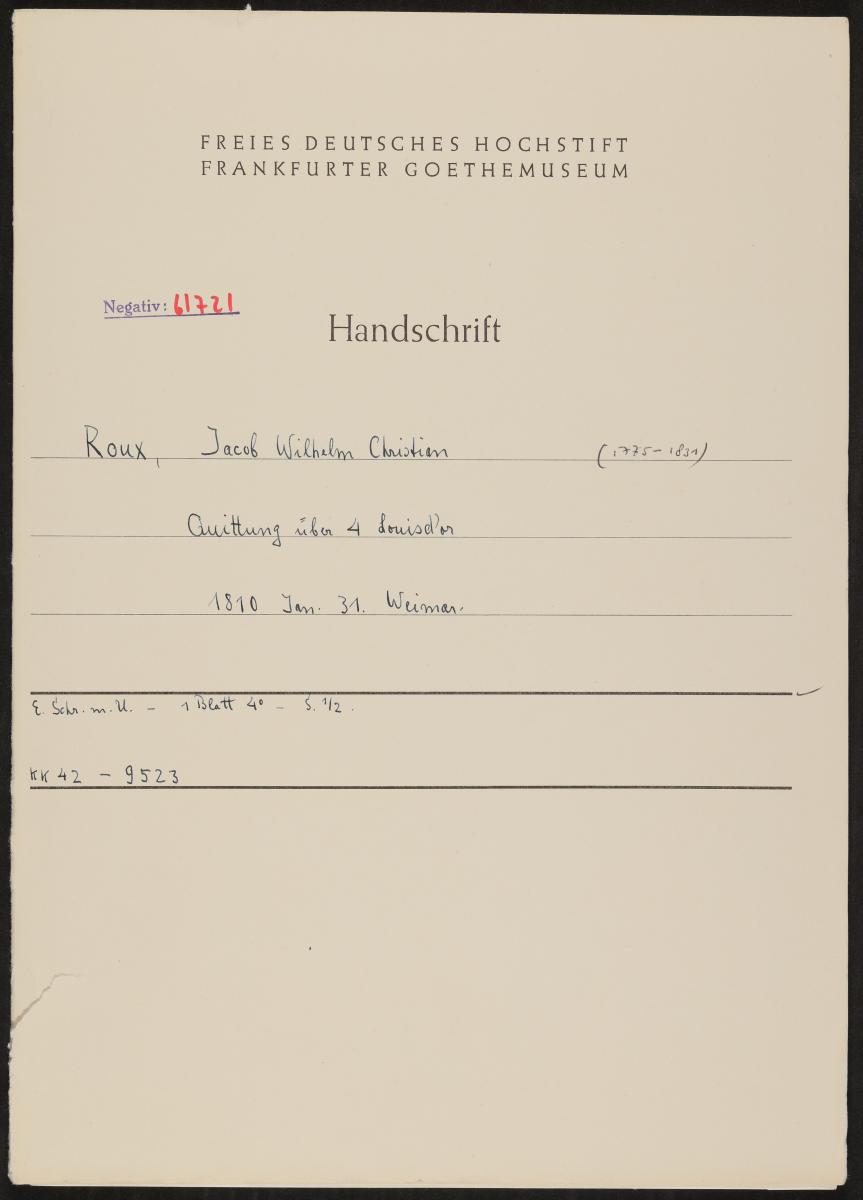 FREIES DEUTSCHES HOCHSTIFT
FRANKFURTER GOETHEMUSEUM
Negativ: 61721
Handschrift
Roux, Jacob Wilhelm Christian (1775-1831)
Quittung über 4 Louisd'or
1810 Jan. 31. Weimar.
E. Schr. m. U. - 1 Blatt 4° - S. 1/2.
KK 42 - 9523